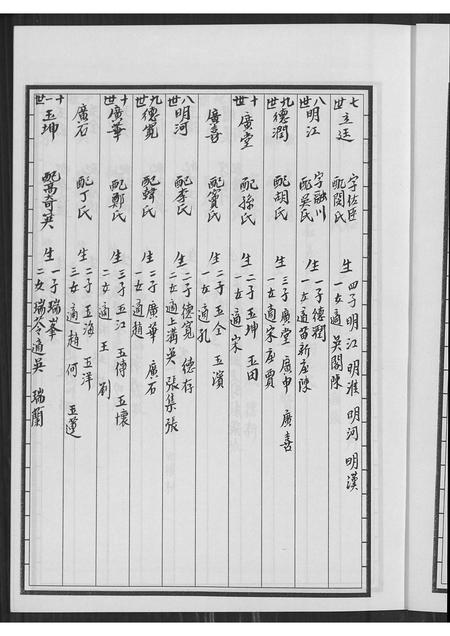 七世 立廷 字佐臣 配閔氏 生 四子 明江 明淮 明河 明漢
一女 適吳閣陳
八世 明江 字融川 配吳氏 生 一子 德潤
一女 適苗新庄陳
九世 德潤 配胡氏 生 三子 廣堂 廣申 廣喜
一女 適宋庄賈
十世 廣堂 配孫氏 生 二子 玉坤 玉田
一女 適宋
廣喜 配賓氏 生 二子 玉全 玉濱
一女 適孔
八世 明河 配李氏 生 二子 德寬 德存
二女 適上溝吳 張集張
九世 德寬 配韓氏 生 二子 廣華 廣石
一女 適趙
十世 廣華 配鄭氏 生 三子 玉江 玉傳 玉懷
二女 適王 劉
廣石 配丁氏 生 二子 玉海 玉洋
三女 適趙 何 玉蓮
十一世 玉坤 配高奇英 生 一子 瑞峯
二女 瑞苓適吳 瑞蘭